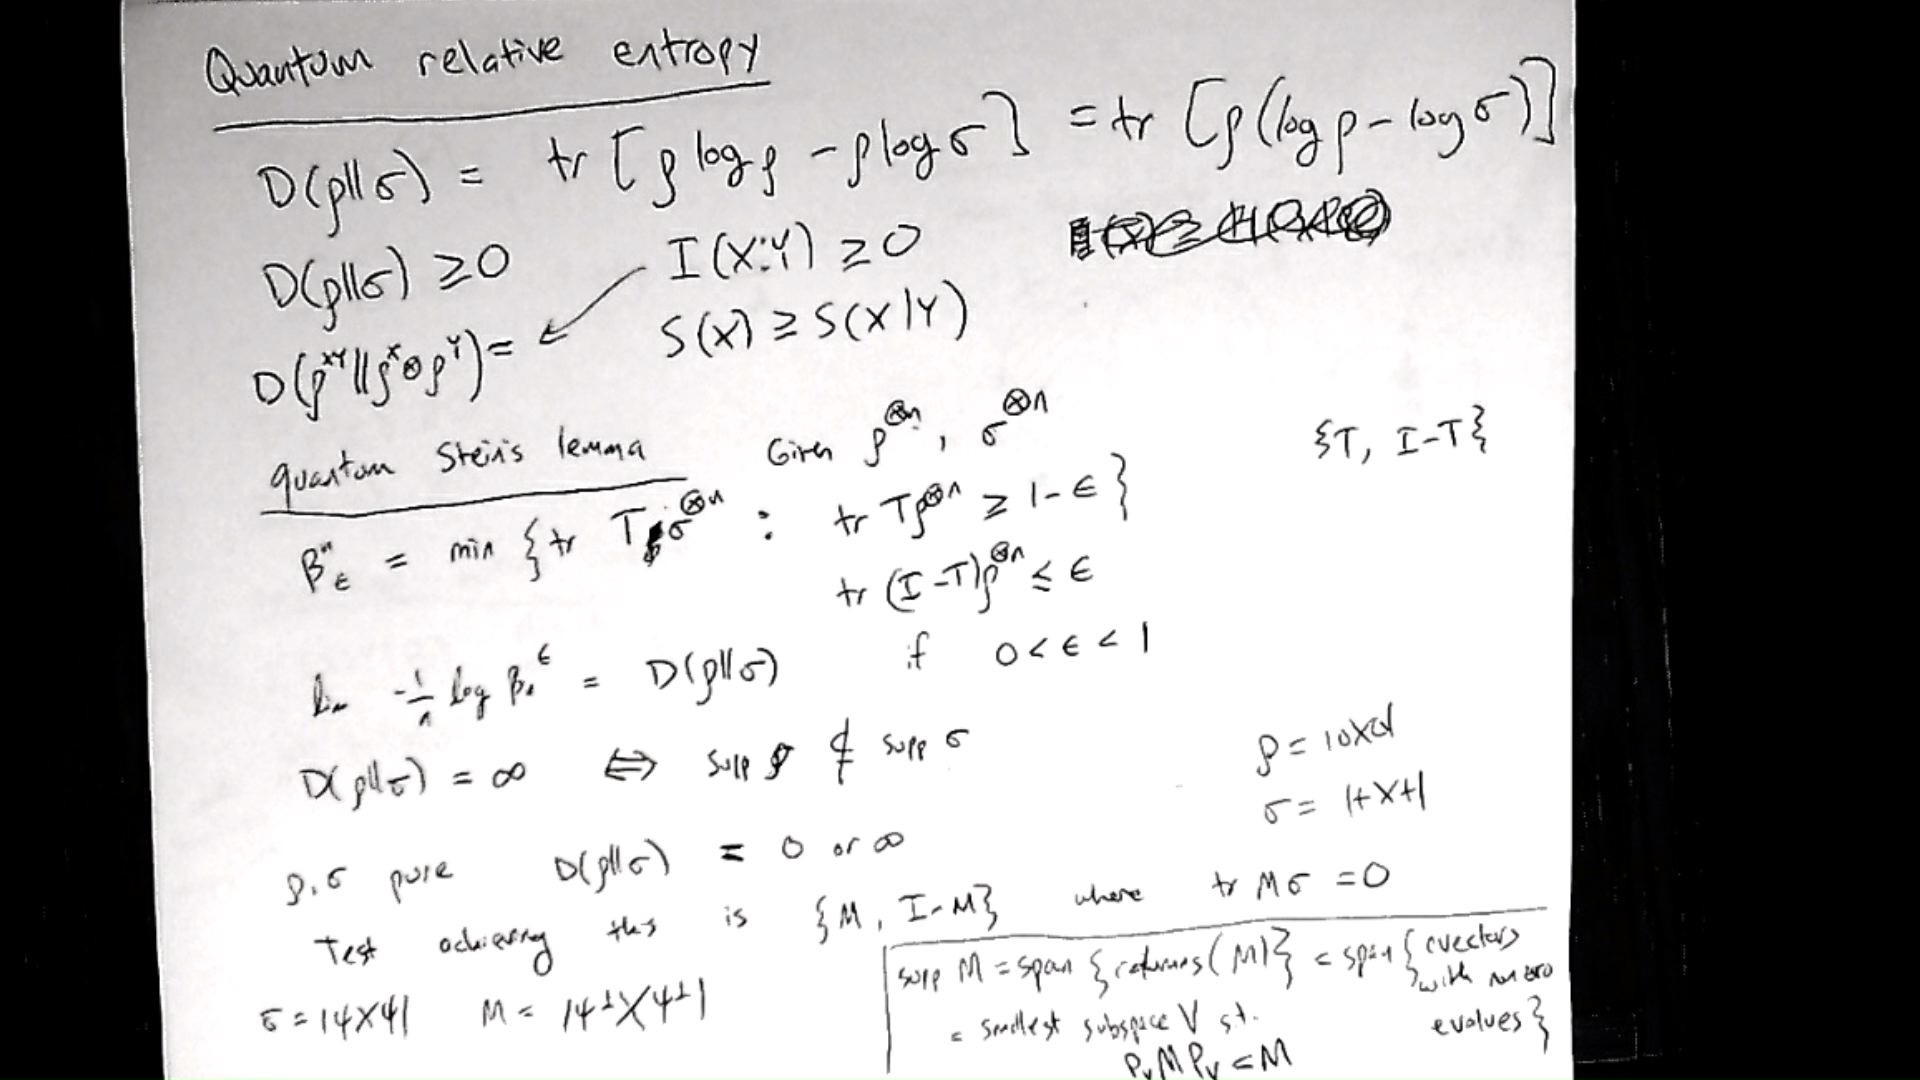 Quantum relative entropy
D(ρ||σ) = tr [ρ log ρ - ρ log σ] = tr [ρ(log ρ - log σ)]
D(ρ||σ) ≥ 0 I(X:Y) ≥ 0
S(X) ≥ S(X|Y)
D(ρ^{XY}||ρ^X⊗ρ^Y) = ↙
quantum Stein's lemma Given ρ^{⊗n}, σ^{⊗n} {T, I-T}
β^n_ε = min {tr T σ^{⊗n} : tr Tρ^{⊗n} ≥ 1-ε}
tr (I-T)ρ^{⊗n} ≤ ε
lim -1/n log β_n^ε = D(ρ||σ) if 0<ε<1
D(ρ||σ) = ∞ ⟺ supp ρ ⊄ supp σ
ρ = |0X0|
σ = |+X+|
ρ,σ pure D(ρ||σ) = 0 or ∞
Test achieving this is {M, I-M} where tr Mσ = 0
σ = |ψXψ| M = |ψ^⊥Xψ^⊥|
supp M = span {columns(M)} = span {evectors with nonzero evalues}
= smallest subspace V s.t.
P_V M P_V = M